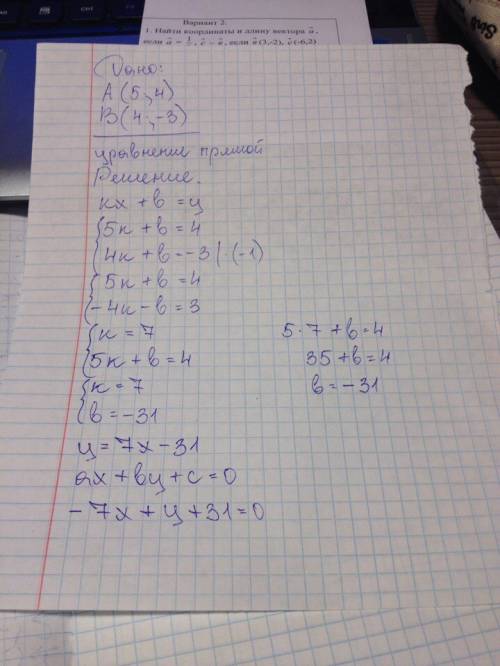 Вариант 2.
1. Найти координаты и длину вектора a,
если a = 1/3 c − в, если в(3,-2), c(-6,2)
Дано:
A (5; 4)
B (4; -3)
уравнение прямой
Решение.
kx + b = y
5k + b = 4
4k + b = -3 | · (-1)
5k + b = 4
-4k - b = 3
k = 7
5k + b = 4
k = 7
b = -31
5 · 7 + b = 4
35 + b = 4
b = -31
y = 7x - 31
ax + by + c = 0
- 7x + y + 31 = 0